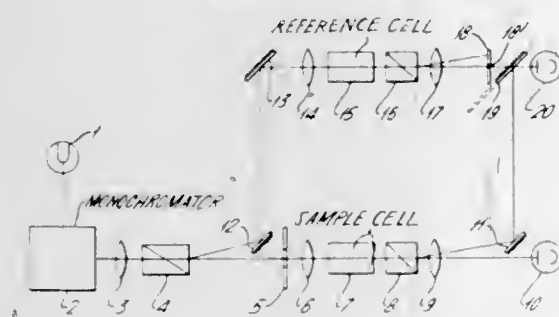 REFERENCE CELL
18
18'
13
14
15
16
17
19
20
1
MONOCHROMATOR
12
SAMPLE CELL
11
2
3
4
5
6
7
8
9
10